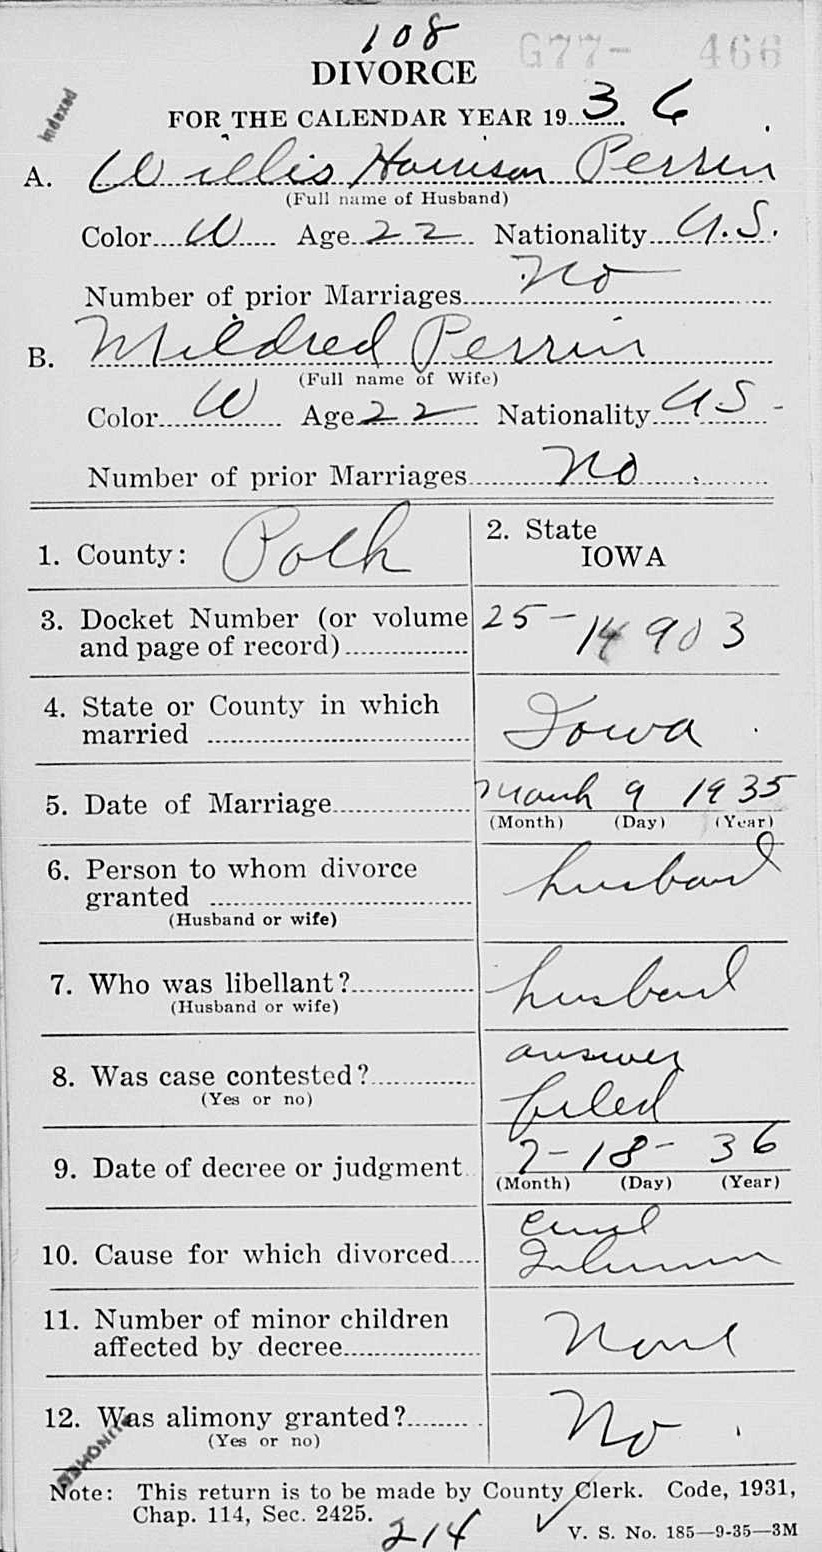 108
G77- 466
DIVORCE
Indexed
FOR THE CALENDAR YEAR 1936
A. Willis Harrison Perrin
(Full name of Husband)
Color W Age 22 Nationality U.S.
Number of prior Marriages No
B. Mildred Perrin
(Full name of Wife)
Color W Age 22 Nationality US
Number of prior Marriages No
1. County: Polk
2. State
IOWA
3. Docket Number (or volume
and page of record) 25-14903
4. State or County in which
married Iowa
5. Date of Marriage March 9 1935
(Month) (Day) (Year)
6. Person to whom divorce
granted husband
(Husband or wife)
7. Who was libellant? husband
(Husband or wife)
8. Was case contested? answer
(Yes or no) filed
9. Date of decree or judgment 7-18-36
(Month) (Day) (Year)
10. Cause for which divorced cruel
Inhuman
11. Number of minor children
affected by decree None
12. Was alimony granted? No
(Yes or no)
Note: This return is to be made by County Clerk. Code, 1931,
Chap. 114, Sec. 2425.
214
V. S. No. 185—9-35—3M